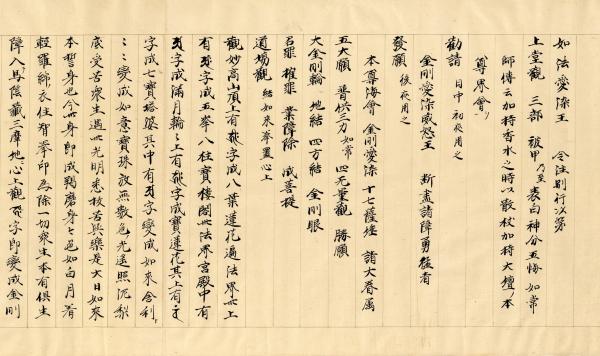 如法愛染王 令法別行次第
上堂觀 三部 被甲乃至 表白神分五悔 如常
師傳云加持香水之時以散杖加持大壇 本
尊界會
勸請 日中初夜用之
金剛愛染威怒王 斷盡諸障勇猛者
發願 後夜用之
本尊海會 金剛愛染 十七薩埵 諸大眷属
五大願 普供三力如常 四无量觀 勝願
大金剛輪 地結 四方結 金剛眼
召罪 摧罪 業障除 成菩提
道場觀 結如来拳置心上
觀妙高山頂上有字成八葉蓮花遍法界其上
有字成五峯八柱寶樓閣此法界宮殿中有
字成滿月輪々上有字成寶蓮花其上有
字成七寶塔婆其中有字變成如来舍利
々變成如意寶珠放無數色光遍照泥梨
底受苦衆生遇此光明悉拔苦与樂是大日如来
本誓身也今此身即成羯磨身々色如白月着
輕羅綿衣住智拳印為除一切衆生本有俱生
障入馬陰蔵三摩地心上觀字即變成金剛